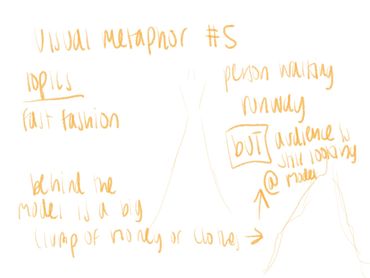 Visual Metaphor #5
topics
fast fashion
person walking
runway
BUT audience is
still looking
@ model
behind the
model is a big
clump of money or clothes